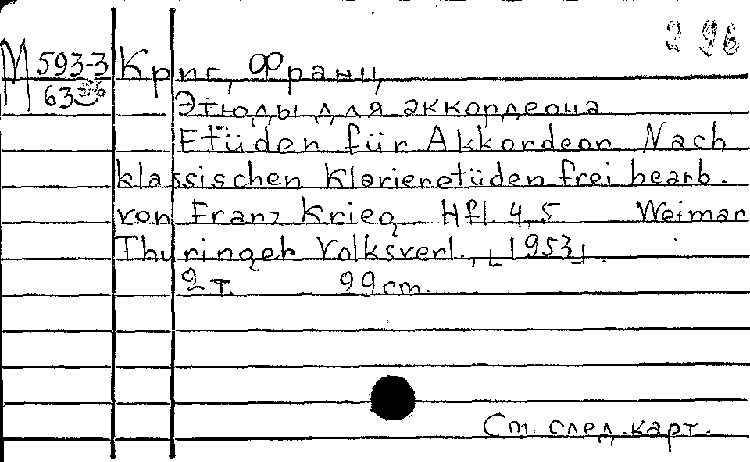 296
М 593-3 Криг, Франц
63
Этюды для аккордеона
Etüden für Akkordeon Nach
klassischen Klavieretüden frei bearb.
von Franz Krieg Hfl. 4,5 Weimar
Thüringer Volksverl., [1953].
2 т. 29 cm.
См. след. карт.